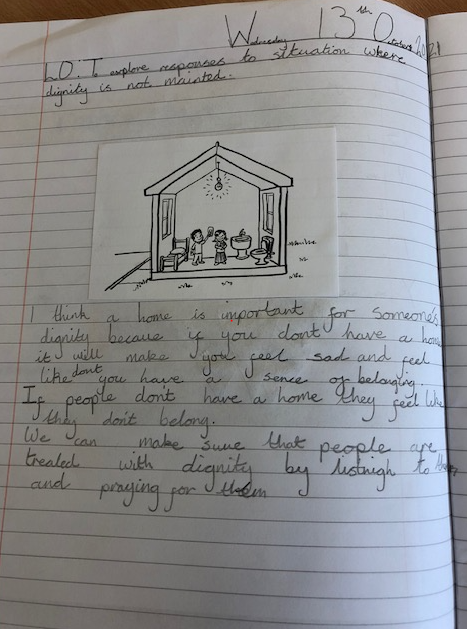 Wednesday 13th October 2021
LO: To explore responses to situation where
dignity is not mainted.
I think a home is important for someone's
dignity becaue if you dont have a home
it will make you feel sad and feel
like dont you have a sence of belonging.
If people don't have a home they feel like
they don't belong.
We can make sure that people are
treated with dignity by listnigh to them
and praying for them